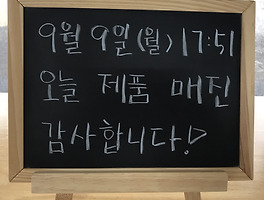 9월 9일 (월) 17:51
오늘 제품 매진
감사합니다!